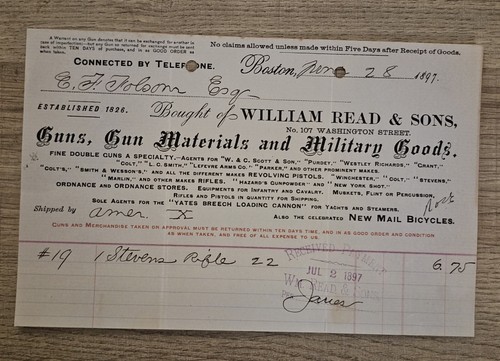 A Warrant on any Gun denotes that it can be exchanged for another in
case of imperfection—but any Gun so returned for exchange must be sent
back within TEN DAYS of purchase, and in as GOOD ORDER as
when taken.
No claims allowed unless made within Five Days after Receipt of Goods.
CONNECTED BY TELEPHONE.
Boston, June 28 1897.
E. F. Folsom Esq
ESTABLISHED 1826.
Bought of WILLIAM READ & SONS,
No. 107 WASHINGTON STREET.
Guns, Gun Materials and Military Goods.
FINE DOUBLE GUNS A SPECIALTY.—AGENTS FOR "W. & C. SCOTT & SON," "PURDEY," "WESTLEY RICHARDS," "GRANT,"
"COLT," "L. C. SMITH," "LEFEVRE ARMS CO." "PARKER," AND OTHER PROMINENT MAKES.
"COLT'S," "SMITH & WESSON'S," AND ALL THE DIFFERENT MAKES REVOLVING PISTOLS. "WINCHESTER," "COLT," "STEVENS,"
"MARLIN," AND OTHER MAKES RIFLES. "HAZARD'S GUNPOWDER" AND "NEW YORK SHOT."
ORDNANCE AND ORDNANCE STORES. EQUIPMENTS FOR INFANTRY AND CAVALRY. MUSKETS, FLINT OR PERCUSSION,
RIFLES AND PISTOLS IN QUANTITY FOR SHIPPING.
SOLE AGENTS FOR THE "YATES BREECH LOADING CANNON" FOR YACHTS AND STEAMERS.
Shipped by Amer. X
ALSO THE CELEBRATED NEW MAIL BICYCLES.
GUNS AND MERCHANDISE TAKEN ON APPROVAL MUST BE RETURNED WITHIN TEN DAYS TIME, AND IN AS GOOD ORDER AND CONDITION
AS WHEN TAKEN, AND FREE OF ALL EXPENSE TO US.
#19 1 Stevens Rifle 22 6.75
RECEIVED PAYMENT
JUL 2 1897
WM. READ & SONS